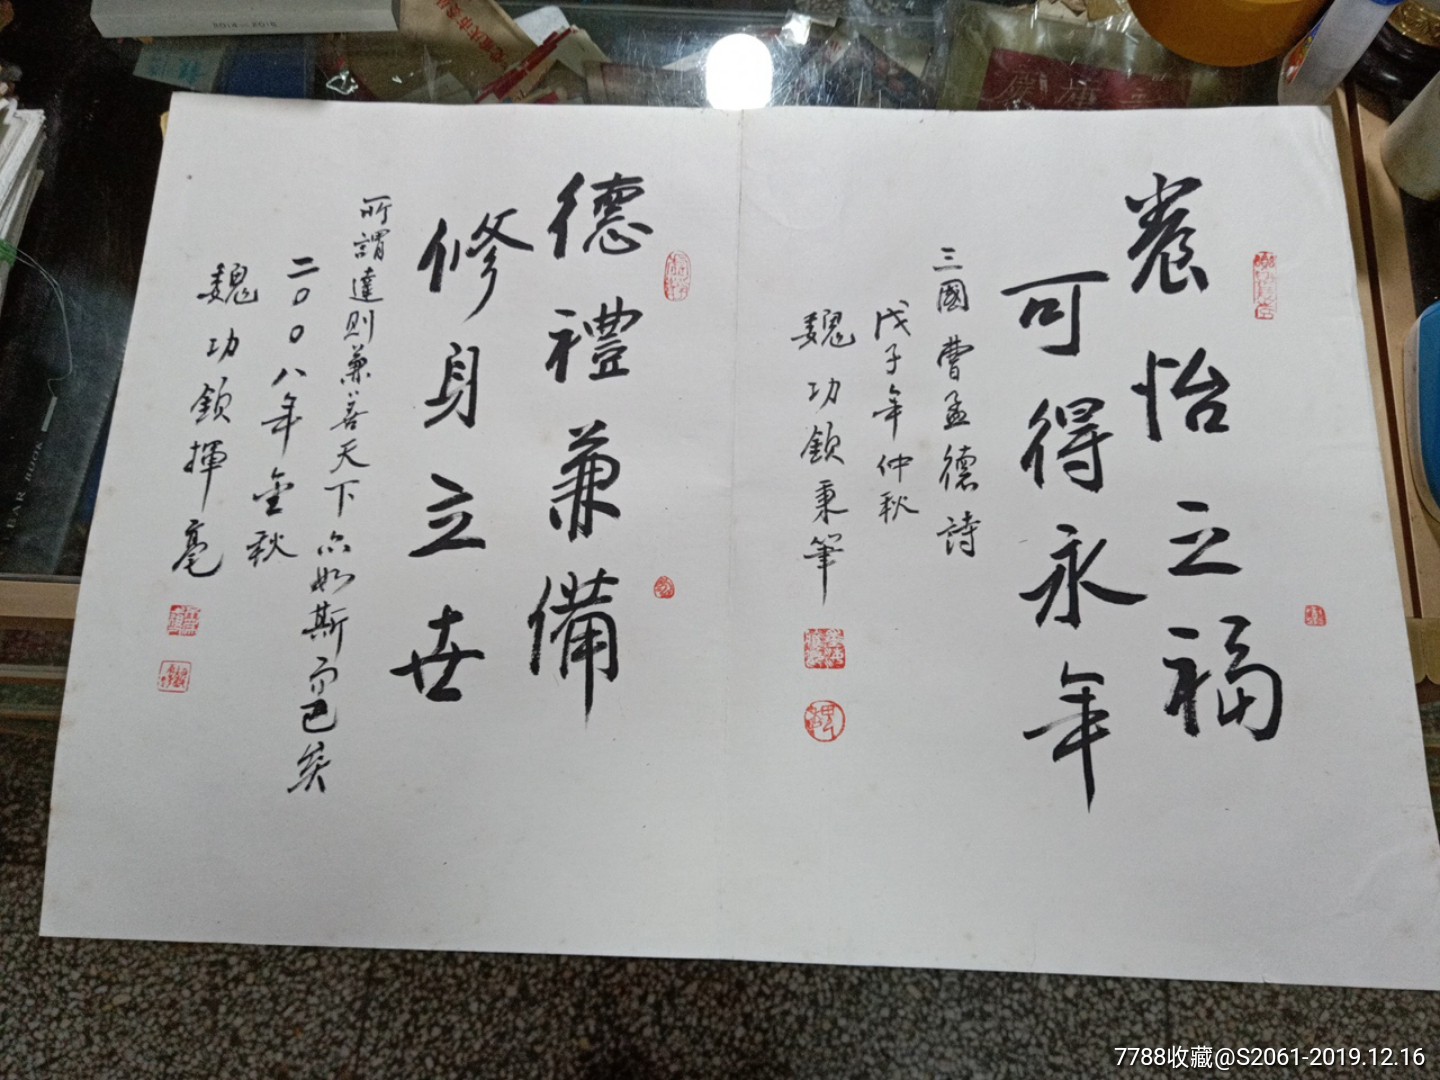 養怡之福
可得永年
三國曹孟德詩
戊子年仲秋
魏功欽秉筆
德禮兼備
修身立世
所謂達則兼善天下亦如斯而已矣
二〇〇八年金秋
魏功欽揮毫
2014—2015
EAR BOOK
7788收藏@S2061-2019.12.16